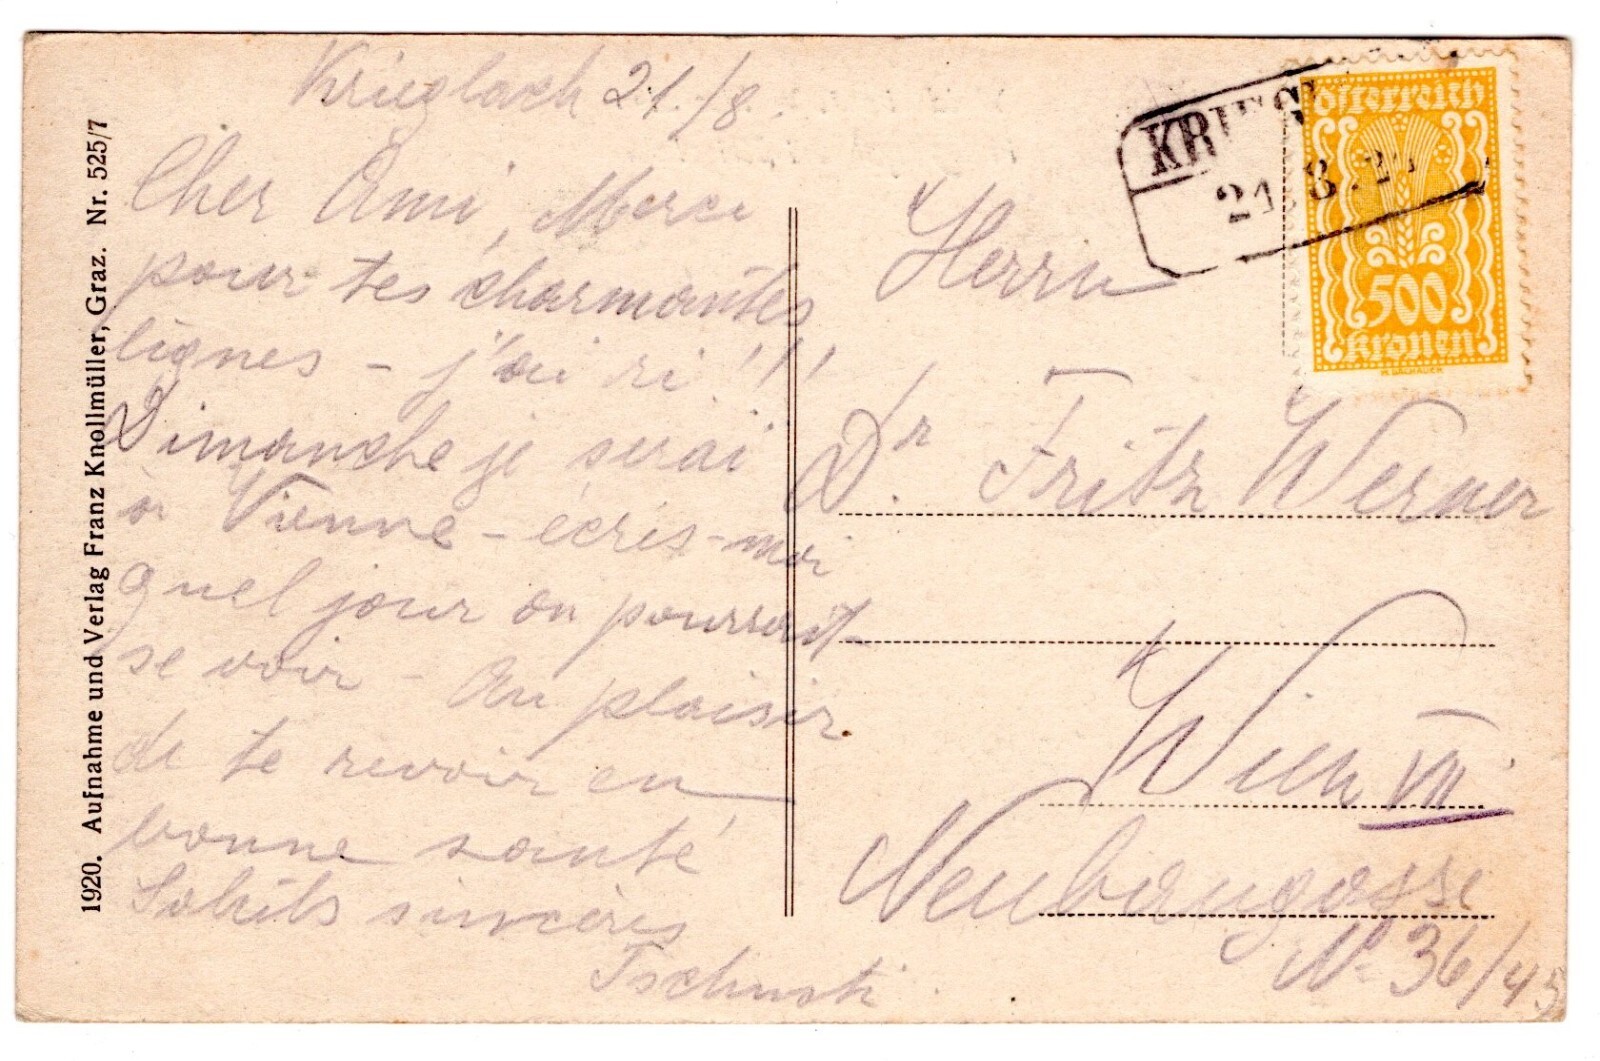 Krieglach 21./8.
Cher Ami, Merci
pour tes charmantes
lignes - j'ai ri!!!
Dimanche je serai
à Vienne - écris-moi
quel jour on pourrait
se voir - Au plaisir
de te revoir en
bonne santé
Saluts sincères
Tschusti
1920. Aufnahme und Verlag Franz Knollmüller, Graz. Nr. 525/7
KRIEG
21.8.2
österreich
500
kronen
Herrn
Dr. Fritz Werner
Wien VII
Neubaugasse
No 36/45